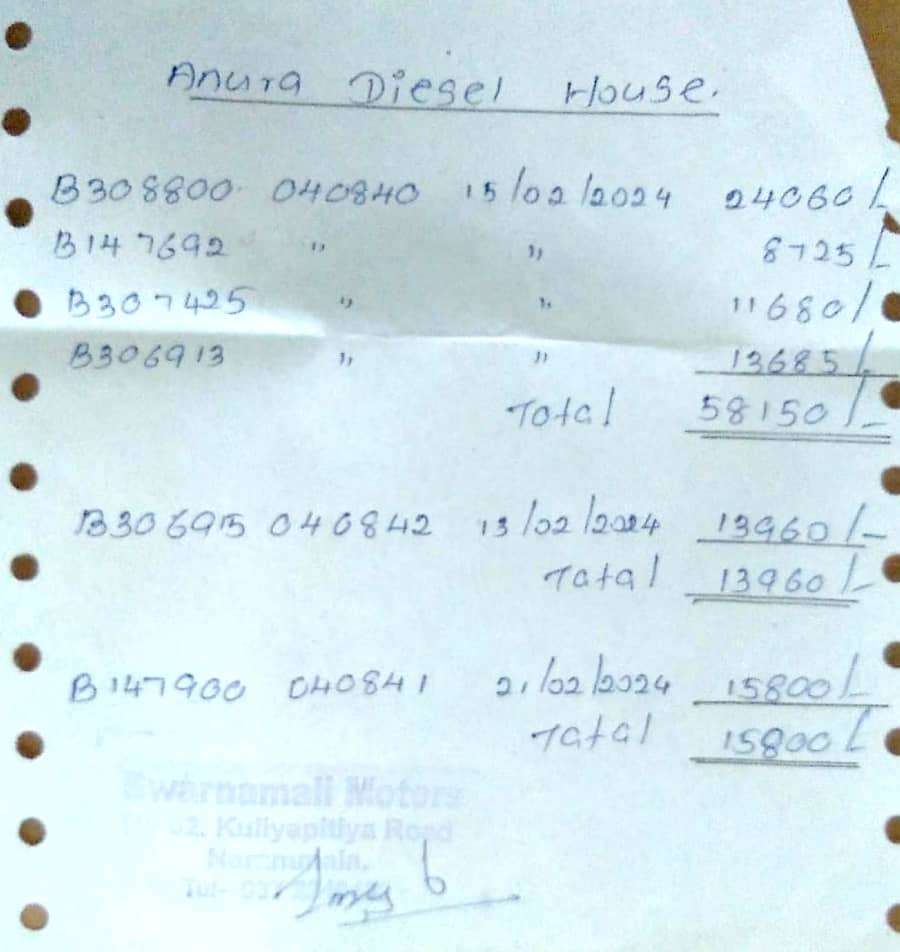 Anura Diesel House.
B308800 040840 15/02/2024 24060/-
B147692 " " 8725/-
B307425 " " 11680/
B306913 " " 13685/-
Total 58150/-
040842 13/02/2024 13960/-
Tatal 13960/-
B147900 040841 21/02/2024 15800/-
Tatal 15800/-
Swarnamali Motors
Kuliyapitiya Road
Tel- 037